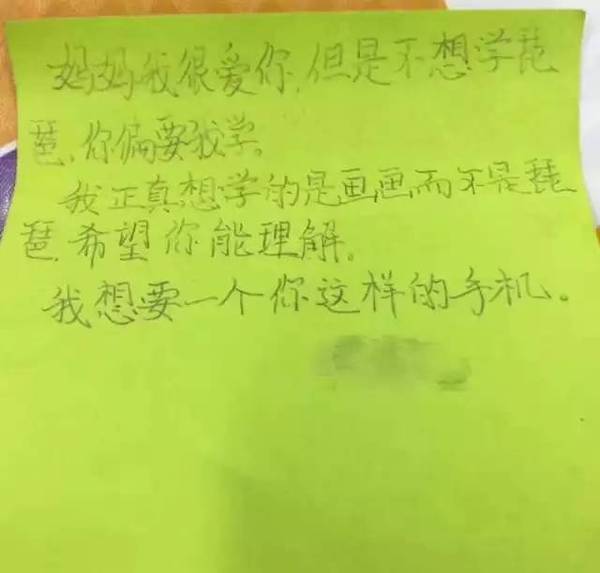 妈妈我很爱你,但是不想学琵
琶,你偏要我学。
我正真想学的是画画而不是琵
琶,希望你能理解。
我想要一个你这样的手机。